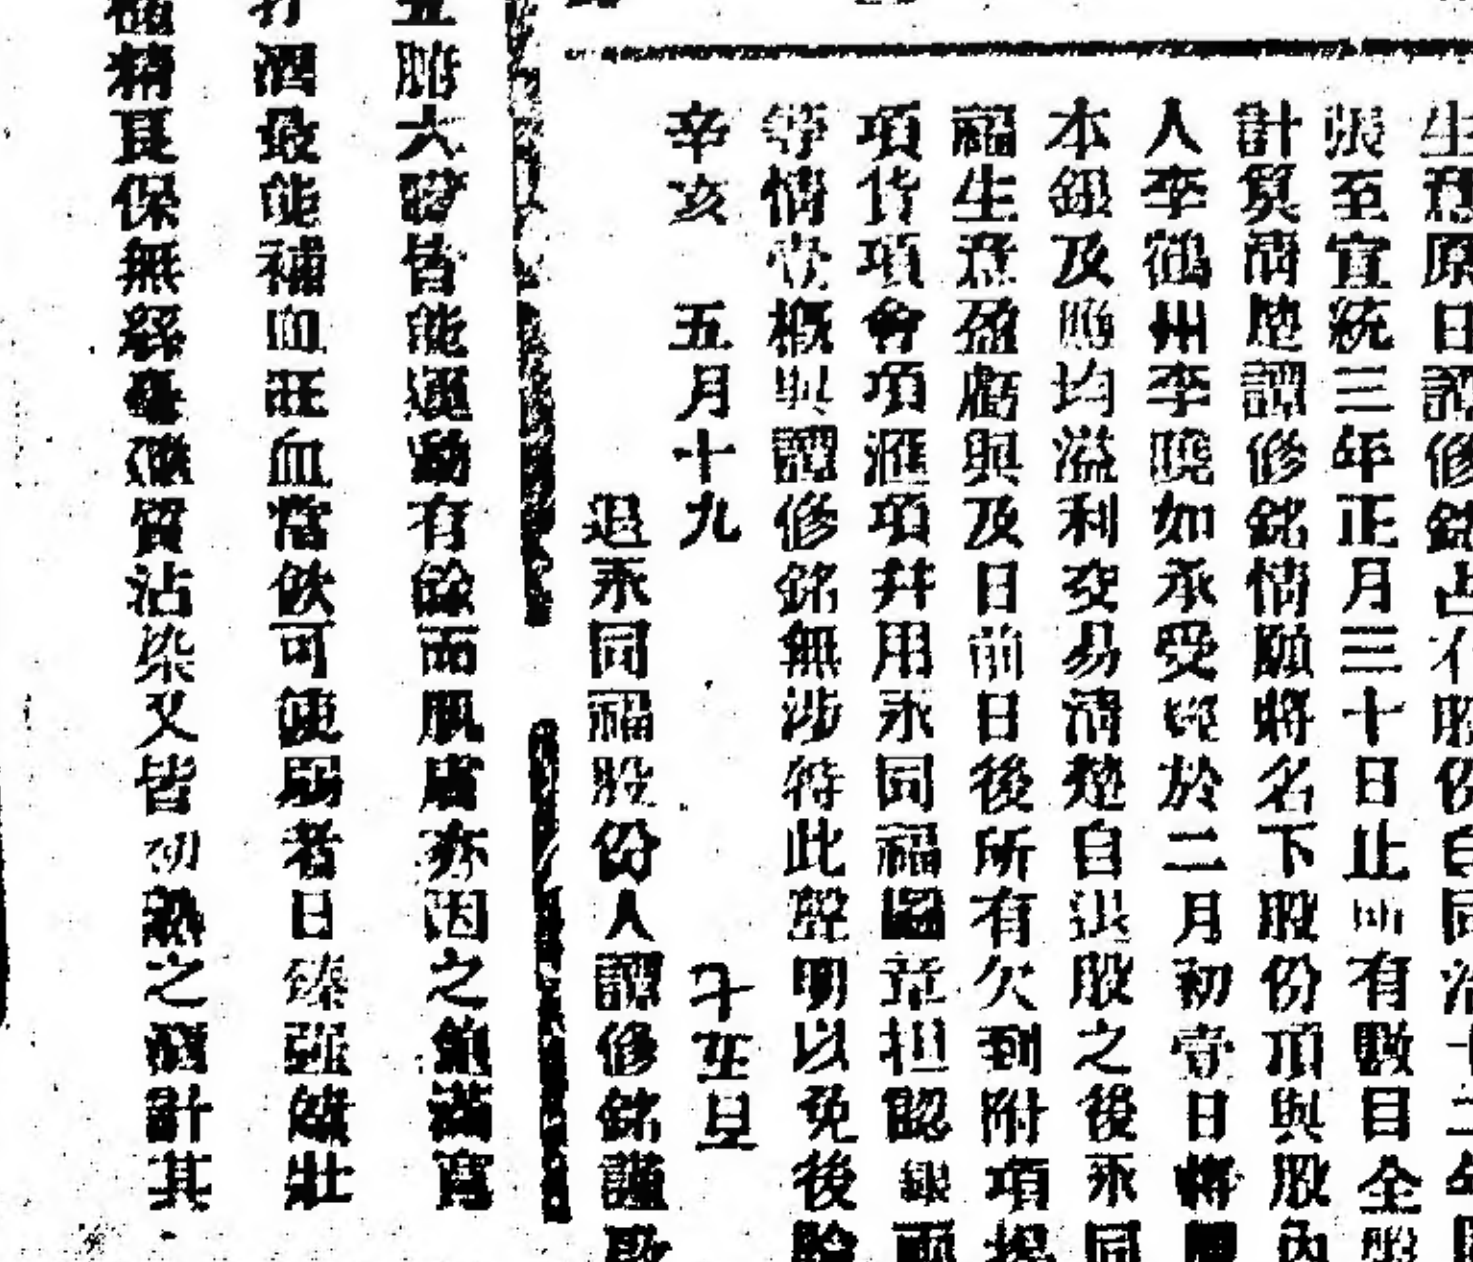 生意原日譚修銘占
張至宣統三年正月三十日止所有數目全盤
計算清楚譚修銘情願將名下股份頂與股內
人李鶴州李曉如承受即於二月初壹日將
本銀及均溢利交易清楚自退股之後永同
福生意盈虧與及日前日後所有欠到附項揭
項貨項會項滙項并用永同福圖章担認銀両
等情壹概與譚修銘無涉特此聲明以免後論
辛亥 五月十九
退永同福股份人譚修銘謹啟
六皆能運動有餘而肌膚亦因之飽滿
酒最能補血旺血常飲可使弱者日臻强健壯
精良保無質沾染又皆初熟之計其